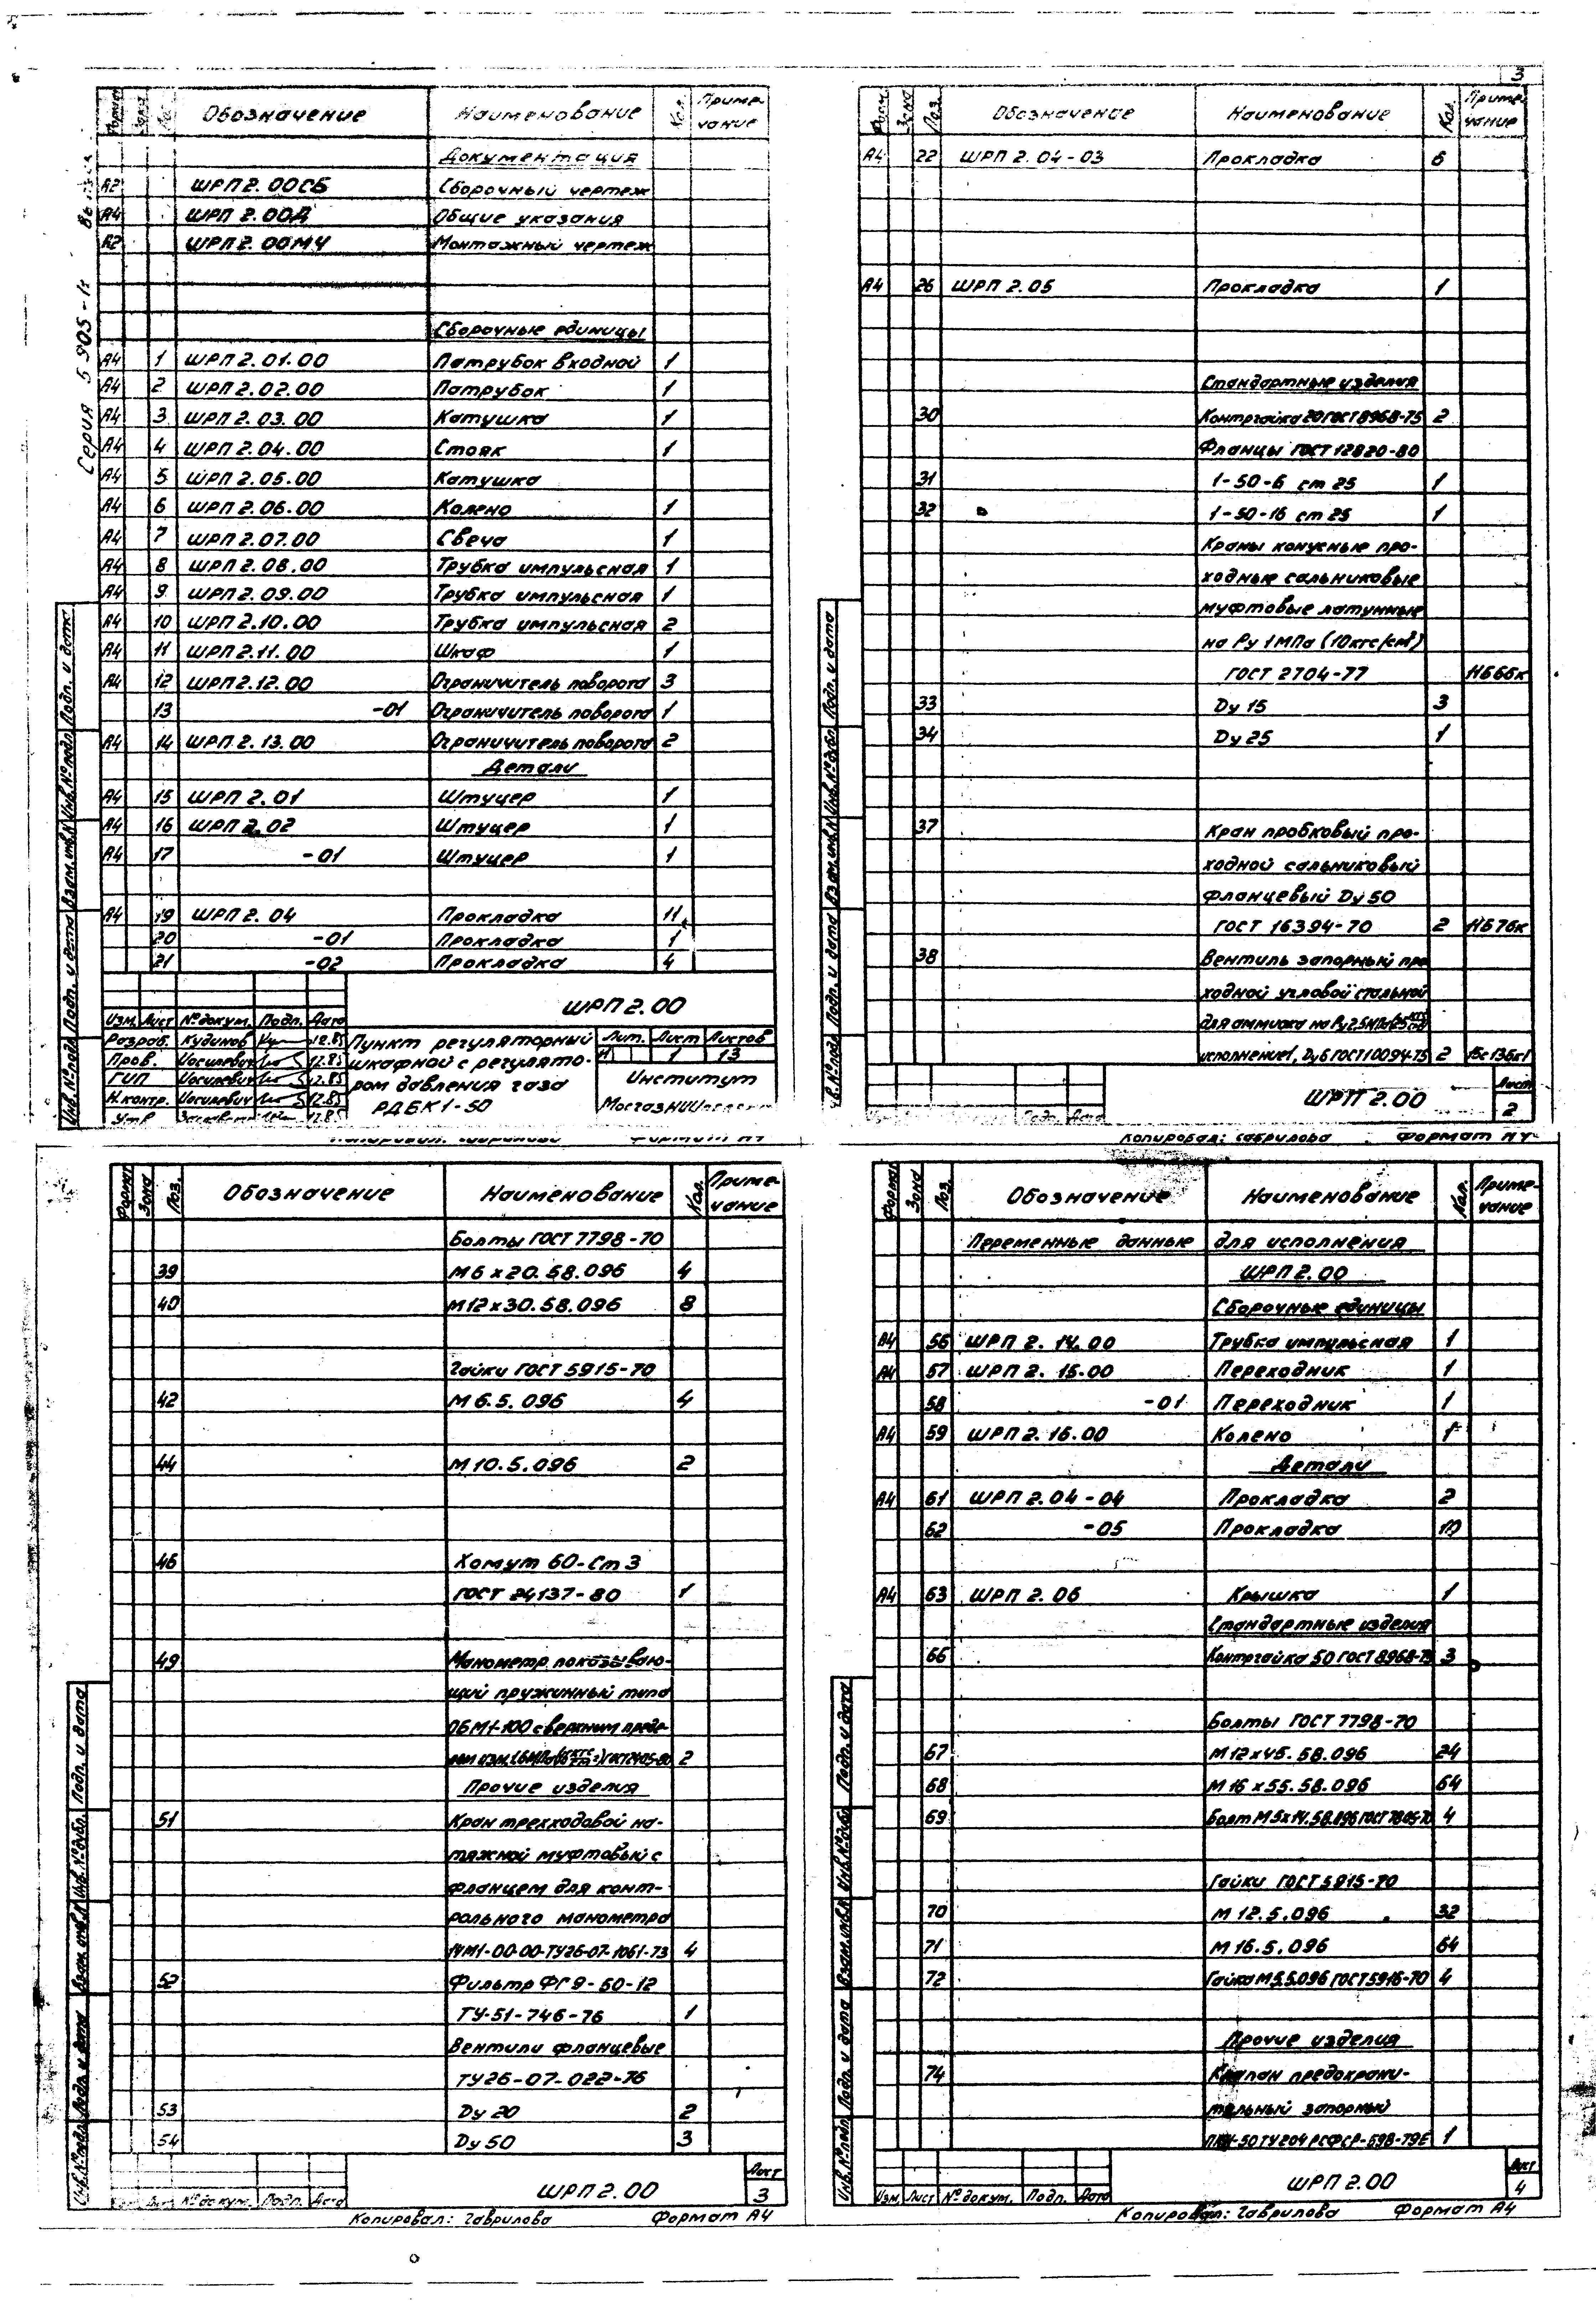 3
Серия 5.905-11
Формат Зона Поз. Обозначение Наименование Кол. Приме-
чание
Документация
А2 ШРП 2.00СБ Сборочный чертеж
А4 ШРП 2.00Д Общие указания
А2 ШРП 2.00МЧ Монтажный чертеж
Сборочные единицы
А4 1 ШРП 2.01.00 Патрубок входной 1
А4 2 ШРП 2.02.00 Патрубок 1
А4 3 ШРП 2.03.00 Катушка 1
А4 4 ШРП 2.04.00 Стояк 1
А4 5 ШРП 2.05.00 Катушка
А4 6 ШРП 2.06.00 Колено 1
А4 7 ШРП 2.07.00 Свеча 1
А4 8 ШРП 2.08.00 Трубка импульсная 1
А4 9 ШРП 2.09.00 Трубка импульсная 1
А4 10 ШРП 2.10.00 Трубка импульсная 2
А4 11 ШРП 2.11.00 Шкаф 1
А4 12 ШРП 2.12.00 Ограничитель поворота 3
13 -01 Ограничитель поворота 1
А4 14 ШРП 2.13.00 Ограничитель поворота 2
Детали
А4 15 ШРП 2.01 Штуцер 1
А4 16 ШРП 2.02 Штуцер 1
А4 17 -01 Штуцер 1
А4 19 ШРП 2.04 Прокладка 11
20 -01 Прокладка 1
21 -02 Прокладка 4
ШРП 2.00
Изм. Лист № докум. Подп. Дата
Разраб. Кудинов 12.85
Пров. Иосилевич 12.85
ГИП Иосилевич 12.85
Н.контр. Иосилевич 12.85
Утв 12.85
Пункт регуляторный
шкафной с регулято-
ром давления газа
РДБК1-50
Лит. Лист Листов
И 1 13
Институт
Инв. № подл. Подп. и дата Взам. инв. № Инв. № подл. Подп. и дата
Форм. Зона Поз. Обозначение Наименование Кол. Приме-
чание
А4 22 ШРП 2.04-03 Прокладка 6
А4 26 ШРП 2.05 Прокладка 1
Стандартные изделия
30 Контргайка 20 ГОСТ 8968-75 2
Фланцы ГОСТ 12820-80
31 1-50-6 ст 25 1
32 1-50-16 ст 25 1
Краны конусные про-
ходные сальниковые
муфтовые латунные
на Ру 1МПа (10кгс/см²)
ГОСТ 2704-77 11Б6бк
33 Dу 15 3
34 Dу 25 1
37 Кран пробковый про-
ходной сальниковый
фланцевый Dу 50
ГОСТ 16394-70 2 11Б7бк
38 Вентиль запорный про
ходной угловой стальной
для аммиака на Ру 2.5МПа
исполнение 1, Dу6 ГОСТ 10094-75 2 15с13бк1
ШРП 2.00
Лист
2
Подп. Дата
Инв. № подл. Подп. и дата Взам. инв. № Инв. № дубл. Подп. и дата
Копировал: Гаврилова Формат А4
Формат Зона Поз. Обозначение Наименование Кол. Приме-
чание
Болты ГОСТ 7798-70
39 М6х20.58.096 4
40 М12х30.58.096 8
Гайки ГОСТ 5915-70
42 М6.5.096 4
44 М10.5.096 2
46 Хомут 60-Ст 3
ГОСТ 24137-80 1
49 Манометр показываю-
щий пружинный типа
ОБМ1-100 с верхним преде-
2
Прочие изделия
51 Кран трехходовой на-
тяжной муфтовый с
фланцем для конт-
рольного манометра
14М1-00-00-ТУ26-07-1061-73 4
52 Фильтр ФГ9-50-12
ТУ-51-746-76 1
Вентили фланцевые
ТУ26-07-022-76
53 Dу 20 2
54 Dу 50 3
ШРП 2.00
Лист
3
Лист № докум. Подп. Дата
Инв. № подл. Подп. и дата Взам. инв. № Инв. № дубл. Подп. и дата
Копировал: Гаврилова Формат А4
Формат Зона Поз. Обозначение Наименование Кол. Приме-
чание
Переменные данные для исполнения
ШРП 2.00
Сборочные единицы
А4 56 ШРП 2.14.00 Трубка импульсная 1
А4 57 ШРП 2.15.00 Переходник 1
58 -01 Переходник 1
А4 59 ШРП 2.16.00 Колено 1
Детали
А4 61 ШРП 2.04-04 Прокладка 2
62 -05 Прокладка 10
А4 63 ШРП 2.06 Крышка 1
Стандартные изделия
66 Контргайка 50 ГОСТ 8968-75 3
Болты ГОСТ 7798-70
67 М12х45.58.096 24
68 М16х55.58.096 64
69 Болт М5х14.58.096 ГОСТ 7805-70 4
Гайки ГОСТ 5915-70
70 М12.5.096 32
71 М16.5.096 64
72 Гайка М5.5.096 ГОСТ 5916-70 4
Прочие изделия
74 Клапан предохрани-
тельный запорный
ПКН-50 ТУ204 РСФСР-598-79Е 1
ШРП 2.00
Лист
4
Изм. Лист № докум. Подп. Дата
Инв. № подл. Подп. и дата Взам. инв. № Инв. № дубл. Подп. и дата
Копировал: Гаврилова Формат А4